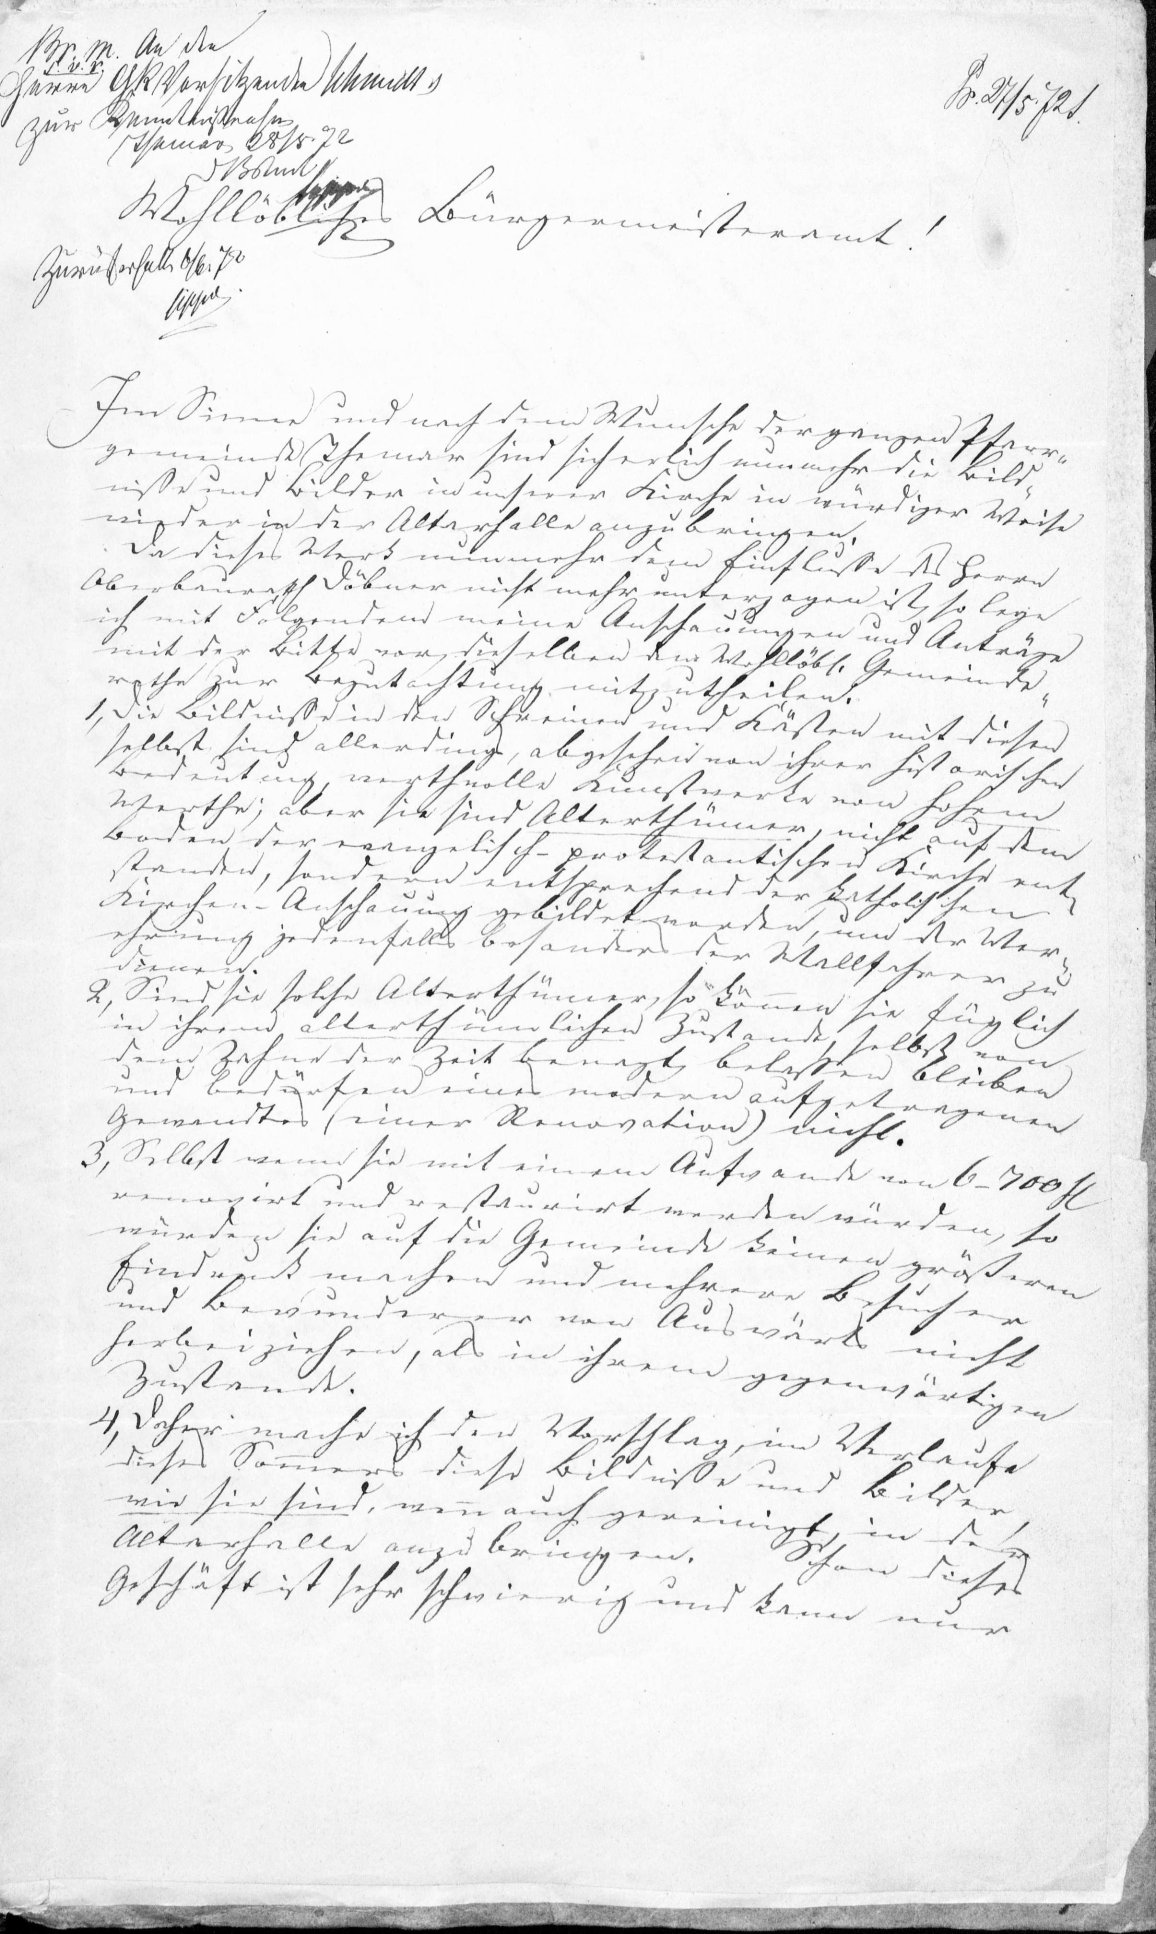 Br. m. An den
s. v. r.
Herrn GR Vorsitzenden Schmidt
zur Kenntnißnahme
Themar 28/5. 72
Pr. 27/5. 72.
Wohllöbliches Bürgermeisteramt!
Zurückerhalten 6/6. 72
Im Sinne und nach dem Wunsche der ganzen Pfarr-
gemeinde Themar sind sicherlich nunmehr die Bild-
niße und Bilder in unserer Kirche in würdiger Weise
wieder in der Altarhalle anzubringen.
Da dieses Werk nunmehr dem Einfluße des Herrn
Oberbaurath Döbner nicht mehr unterzogen ist, so lege
ich mit Folgendem meine Anschauungen und Anträge
mit der Bitte vor, dieselben dem Wohllöbl. Gemeinde-
rathe zur Begutachtung mitzutheilen.
1, Die Bildniße in den Schreinen und Kästen mit diesen
selbst sind allerdings, abgesehen von ihrer historischen
Bedeutung, werthvolle Kunstwerke von hohem
Werthe; aber sie sind Alterthümer, nicht auf dem
Boden der evangelisch-protestantischen Kirche ent-
standen, sondern entsprechend der katholischen
Kirchen-Anschauung gebildet worden, um der Ver-
ehrung jedenfalls besonders der Wallfahrer zu
dienen.
2, Sind sie solche Alterthümer, so können sie füglich
in ihrem alterthümlichen Zustande, selbst von
dem Zahne der Zeit benagt, belaßen bleiben
und bedürfen eines modern aufgetragenen
Gewandtes (einer Renovation) nicht.
3, Selbst wenn sie mit einem Aufwande von 6-700 fl
renovirt und restaurirt werden würden, so
würden sie auf die Gemeinde keinen größeren
Eindruck machen und mehrere Besucher
und Bewunderer von Auswärts nicht
herbeiziehen, als in ihrem gegenwärtigen
Zustande.
4, Daher mache ich den Vorschlag, im Verlaufe
dieses Sommers diese Bildniße und Bilder,
wie sie sind, wenn auch gereinigt, in der
Altarhalle anzubringen. Schon dieses
Geschäft ist sehr schwierig und kann nur